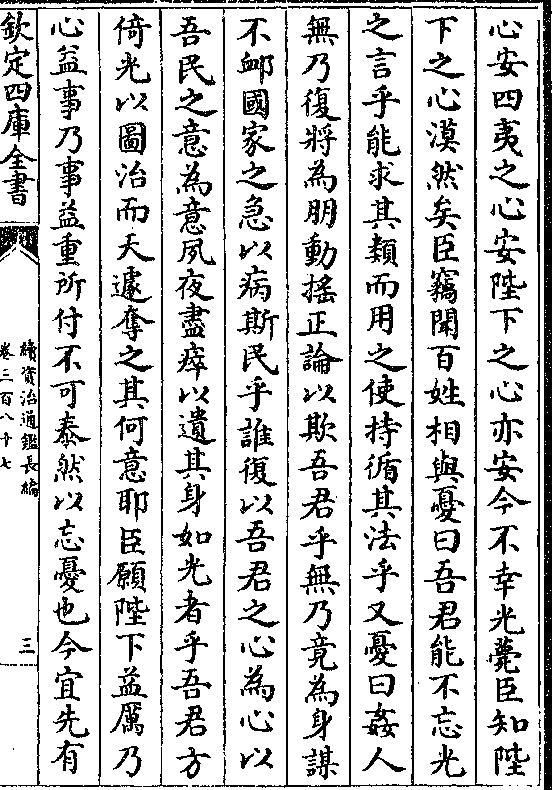 心安四夷之心安陛下之心亦安今不幸光薨臣知陛
下之心漠然矣臣竊聞百姓相與憂曰吾君能不忘光
之言乎能求其類而用之使持循其法乎又憂曰姦人
無乃復將為朋動搖正論以欺吾君乎無乃竟為身謀
不衈國家之急以病斯民乎誰復以吾君之心為心以
吾民之意為意夙夜盡瘁以遺其身如光者乎吾君方
倚光以圖治而天遽奪之其何意耶臣願陛下益厲乃
心益事乃事益重所付不可泰然以忘憂也今宜先有
欽定四庫全書
續資治通鑑長編
卷三百八十七
三